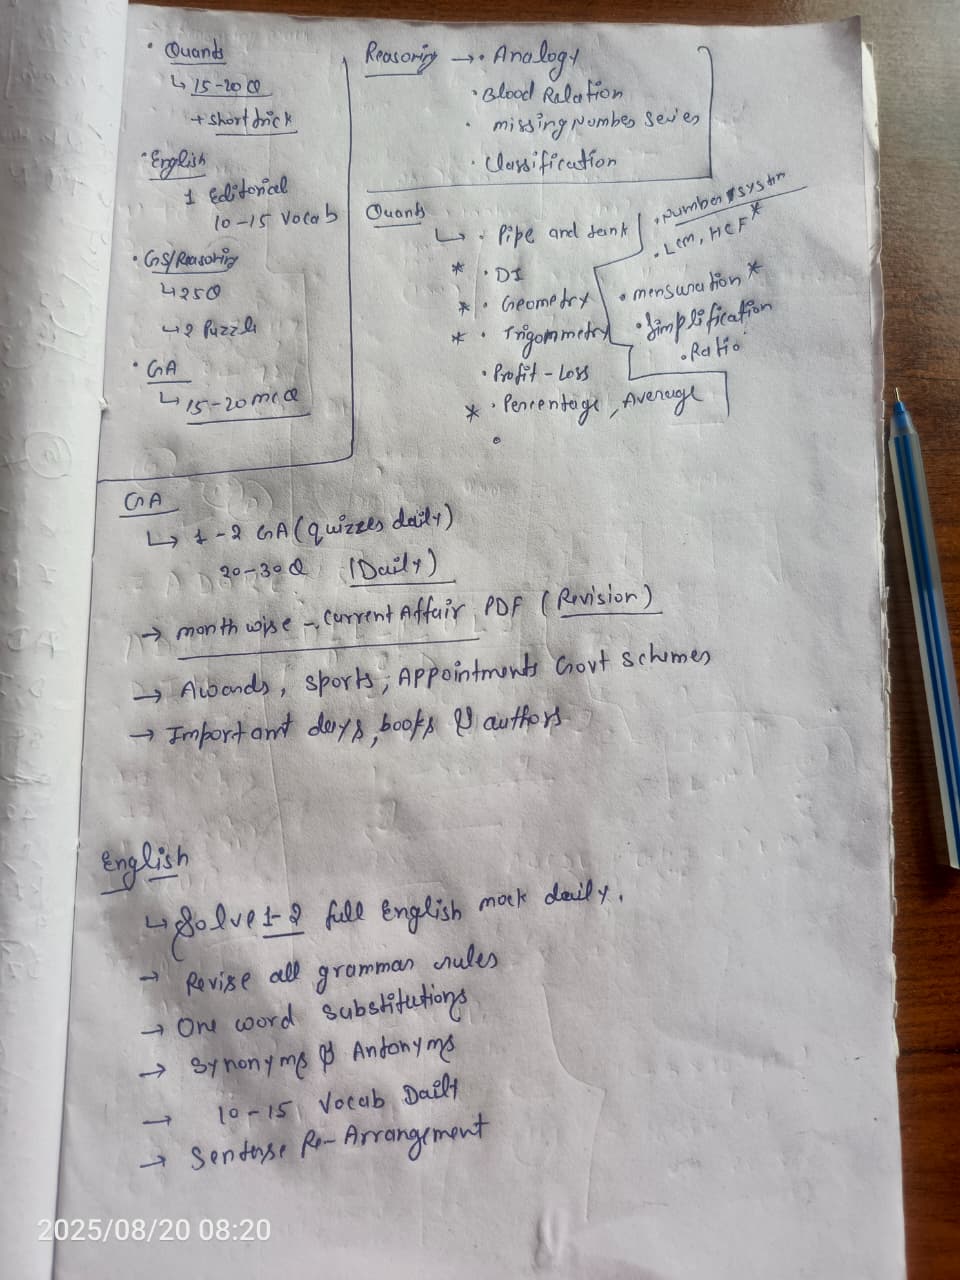 • Quants
↳ 15-20 Q
+ short trick
• English
1 Editorial
10-15 Vocab
• GS/Reasoning
↳ 25Q
↳ 2 Puzzle
• GA
↳ 15-20 mcQ
Reasoning → • Analogy
• Blood Relation
• missing number series
• Classification
Quants
↳ • Pipe and tank
* • DI
* • Geometry
* • Trigommetry
• Profit - Loss
* • Percentage, Average
•
• Number system
• Lcm, HCF *
• mensuration *
• Simplification
• Ratio
GA
↳ 1-2 GA (quizzes daily)
20-30 Q (Daily)
→ month wise - Current Affair PDF (Revision)
→ Awards, sports, Appointments Govt schemes
→ Important days, books & authors
English
↳ Solve 1-2 full English mock daily.
→ Revise all grammar rules
→ One word substitutions
→ Synonyms & Antonyms
→ 10-15 Vocab Daily
→ Sentense Re-Arrangement
2025/08/20 08:20